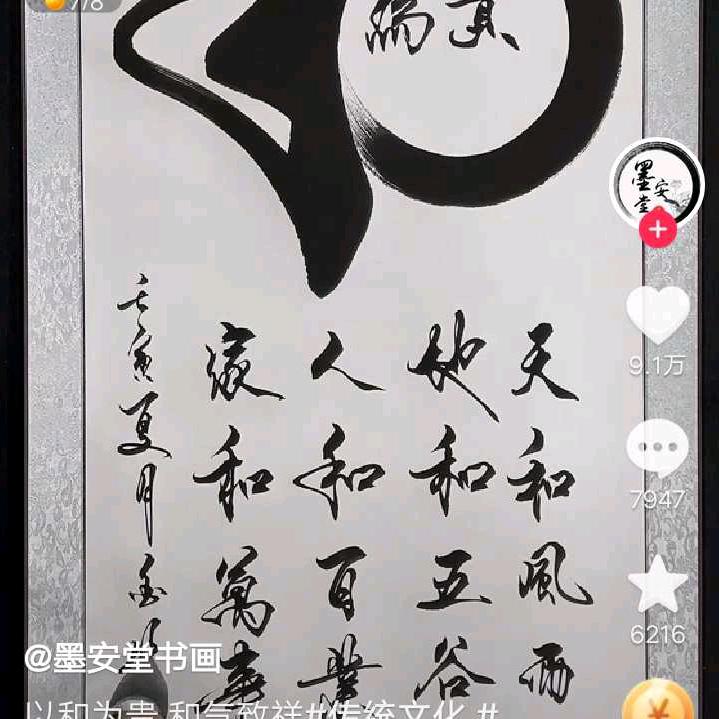 天和風雨
地和五谷
人和百業
家和萬事
壬寅夏月
墨安堂
9.1万
7947
6216
@墨安堂书画
以和为贵,和气致祥#传统文化 #